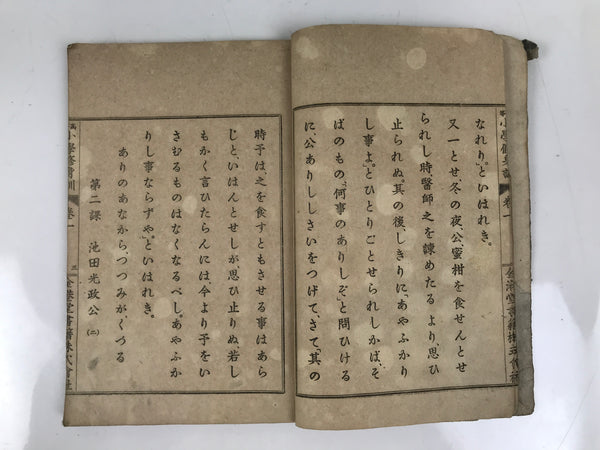 小學修身訓 卷一 金港堂書籍株式會社
なれり。」といはれき。
又一とせ、冬の夜、公、蜜柑を食せんとせ
られし時醫師之を諫めたるより、思ひ
止られぬ。其の後、しきりに「あやふかり
し事よ。」とひとりごとせられしかば、そ
ばのもの、「何事のありしぞ」と問ひける
に、公ありししさいをつげて、さて、「其の
時予は、之を食すともさせる事はあら
じと、いはんとせしが思ひ止りぬ、若し
もかく言ひたらんには、今より予をい
さむるものはなくなるべし。あやふか
りし事ならずや。」といはれき。
ありのあなから、つつみが、くづる
第二課 池田光政公 (二)
小學修身訓 卷一 三 金港堂書籍株式會社